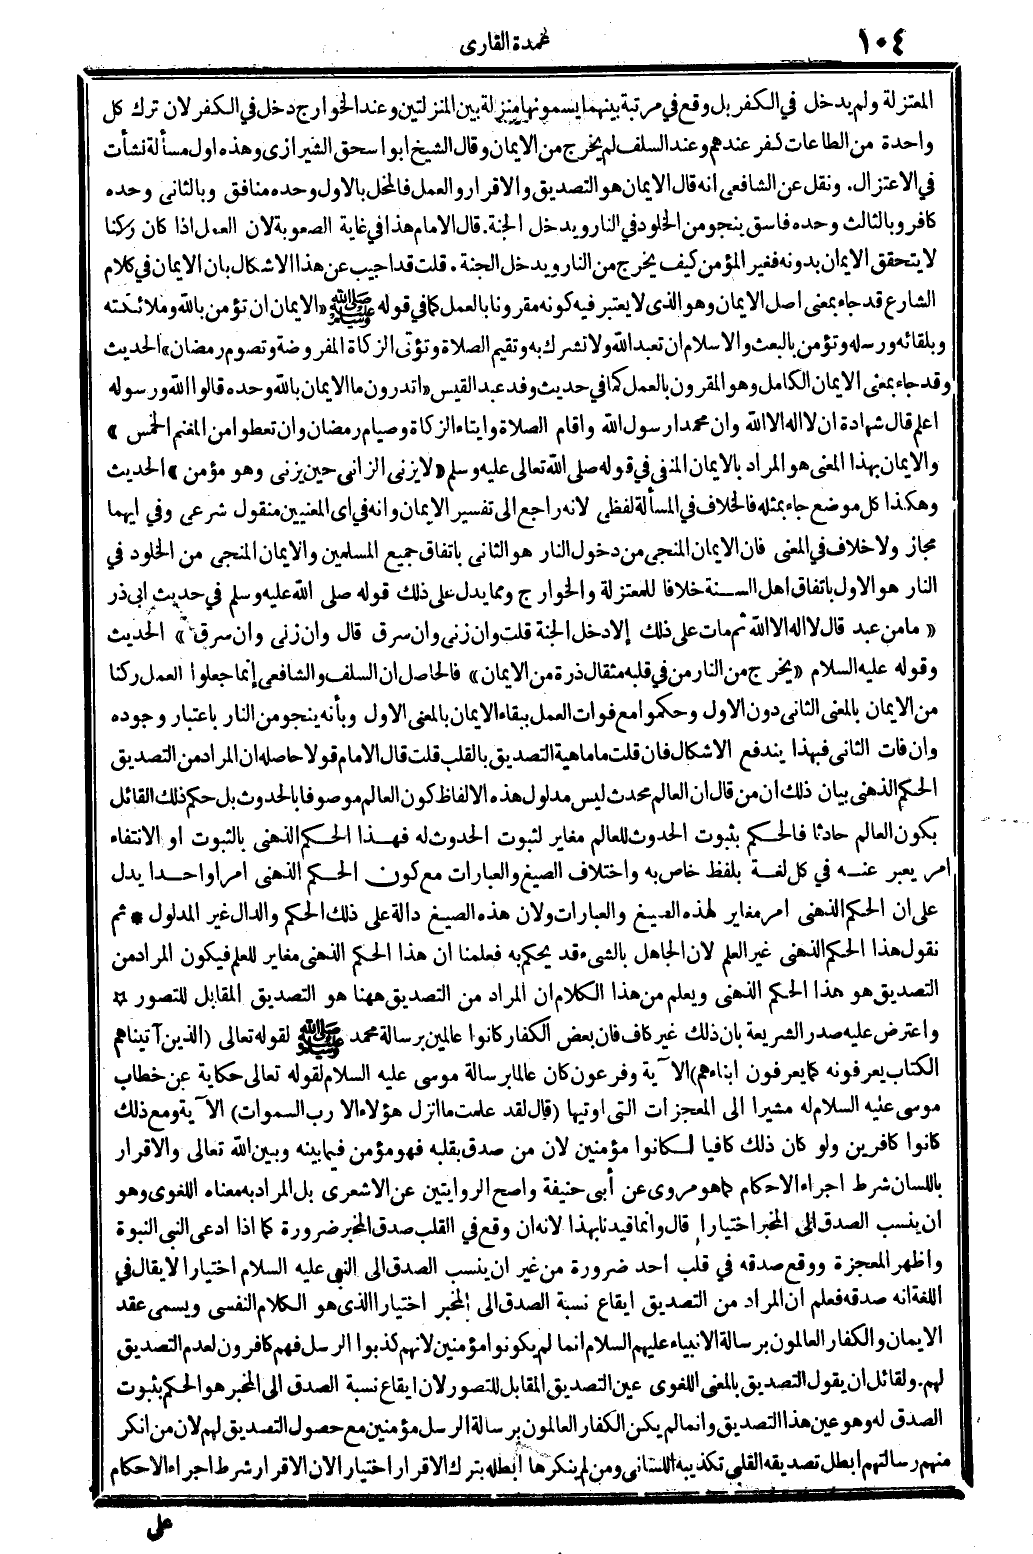 ١٠٤
عمدة القارى
المعتزلة ولم يدخل في الكفر بل وقع في مرتبة بينهما يسمونها منزلة بين المنزلتين وعند الخوارج دخل في الكفر لان ترك كل
واحدة من الطاعات كفر عندهم وعند السلف لم يخرج من الايمان وقال الشيخ ابو اسحق الشيرازى وهذه اول مسألة نشأت
في الاعتزال. ونقل عن الشافعى انه قال الايمان هو التصديق والاقرار والعمل فالمخل بالاول وحده منافق وبالثانى وحده
كافر وبالثالث وحده فاسق ينجو من الخلود في النار ويدخل الجنة. قال الامام هذا في غاية الصعوبة لان العمل اذا كان ركنا
لا يتحقق الايمان بدونه فغير المؤمن كيف يخرج من النار ويدخل الجنة. قلت قد اجيب عن هذا الاشكال بان الايمان في كلام
الشارع قد جاء بمعنى اصل الايمان وهو الذى لا يعتبر فيه كونه مقرونا بالعمل كما في قوله ﷺ «الايمان ان تؤمن بالله وملائكته
وبلقائه ورسله وتؤمن بالبعث والاسلام ان تعبد الله ولا تشرك به وتقيم الصلاة وتؤتى الزكاة المفروضة وتصوم رمضان» الحديث
وقد جاء بمعنى الايمان الكامل وهو المقرون بالعمل كما في حديث وفد عبد القيس «اتدرون ما الايمان بالله وحده قالوا الله ورسوله
اعلم قال شهادة ان لا اله الا الله وان محمدا رسول الله واقام الصلاة وايتاء الزكاة وصيام رمضان وان تعطوا من المغنم الخمس»
والايمان بهذا المعنى هو المراد بالايمان المنفى في قوله صلى الله تعالى عليه وسلم «لا يزنى الزانى حين يزنى وهو مؤمن» الحديث
وهكذا كل موضع جاء بمثله فالخلاف في المسألة لفظى لانه راجع الى تفسير الايمان وانه في اى المعنيين منقول شرعى وفي ايهما
مجاز ولا خلاف في المعنى فان الايمان المنجى من دخول النار هو الثانى باتفاق جميع المسلمين والايمان المنجى من الخلود في
النار هو الاول باتفاق اهل السنة خلافا للمعتزلة والخوارج ومما يدل على ذلك قوله صلى الله عليه وسلم في حديث ابى ذر
«ما من عبد قال لا اله الا الله ثم مات على ذلك إلا دخل الجنة قلت وان زنى وان سرق قال وان زنى وان سرق» الحديث
وقوله عليه السلام «يخرج من النار من في قلبه مثقال ذرة من الايمان» فالحاصل ان السلف والشافعى إنما جعلوا العمل ركنا
من الايمان بالمعنى الثانى دون الاول وحكموا مع فوات العمل ببقاء الايمان بالمعنى الاول وبأنه ينجو من النار باعتبار وجوده
وان فات الثانى فبهذا يندفع الاشكال فان قلت ما ماهية التصديق بالقلب قلت قال الامام قولا حاصله ان المراد من التصديق
الحكم الذهنى بيان ذلك ان من قال ان العالم محدث ليس مدلول هذه الالفاظ كون العالم موصوفا بالحدوث بل حكم ذلك القائل
بكون العالم حادثا فالحكم بثبوت الحدوث للعالم مغاير لثبوت الحدوث له فهذا الحكم الذهنى بالثبوت او الانتفاء
امر يعبر عنه في كل لغة بلفظ خاص به واختلاف الصيغ والعبارات مع كون الحكم الذهنى امرا واحدا يدل
على ان الحكم الذهنى امر مغاير لهذه الصيغ والعبارات ولان هذه الصيغ دالة على ذلك الحكم والدال غير المدلول * ثم
نقول هذا الحكم الذهنى غير العلم لان الجاهل بالشىء قد يحكم به فعلمنا ان هذا الحكم الذهنى مغاير للعلم فيكون المراد من
التصديق هو هذا الحكم الذهنى ويعلم من هذا الكلام ان المراد من التصديق ههنا هو التصديق المقابل للتصور ☆
واعترض عليه صدر الشريعة بان ذلك غير كاف فان بعض الكفار كانوا عالمين برسالة محمد ﷺ لقوله تعالى (الذين آتيناهم
الكتاب يعرفونه كما يعرفون ابناءهم) الآية وفرعون كان عالما برسالة موسى عليه السلام لقوله تعالى حكاية عن خطاب
موسى عليه السلام له مشيرا الى المعجزات التى اوتيها (قال لقد علمت ما انزل هؤلاء الا رب السموات) الآية ومع ذلك
كانوا كافرين ولو كان ذلك كافيا لكانوا مؤمنين لان من صدق بقلبه فهو مؤمن فيما بينه وبين الله تعالى والاقرار
باللسان شرط اجراء الاحكام كما هو مروى عن أبى حنيفة واصح الروايتين عن الاشعرى بل المراد به معناه اللغوى وهو
ان ينسب الصدق الى المخبر اختيارا قال وانما قيدنا بهذا لانه ان وقع في القلب صدق المخبر ضرورة كما اذا ادعى النبى النبوة
واظهر المعجزة ووقع صدقه في قلب احد ضرورة من غير ان ينسب الصدق الى النبى عليه السلام اختيارا لا يقال في
اللغة انه صدقه فعلم ان المراد من التصديق ايقاع نسبة الصدق الى المخبر اختيارا الذى هو الكلام النفسى ويسمى عقد
الايمان والكفار العالمون برسالة الانبياء عليهم السلام انما لم يكونوا مؤمنين لانهم كذبوا الرسل فهم كافرون لعدم التصديق
لهم. ولقائل ان يقول التصديق بالمعنى اللغوى عين التصديق المقابل للتصور لان ايقاع نسبة الصدق الى المخبر هو الحكم بثبوت
الصدق له وهو عين هذا التصديق وانما لم يكن الكفار العالمون برسالة الرسل مؤمنين مع حصول التصديق لهم لان من انكر
منهم رسالتهم ابطل تصديقه القلبى تكذيبه اللسانى ومن لم ينكرها ابطله بترك الاقرار اختيارا لان الاقرار شرط اجراء الاحكام
على